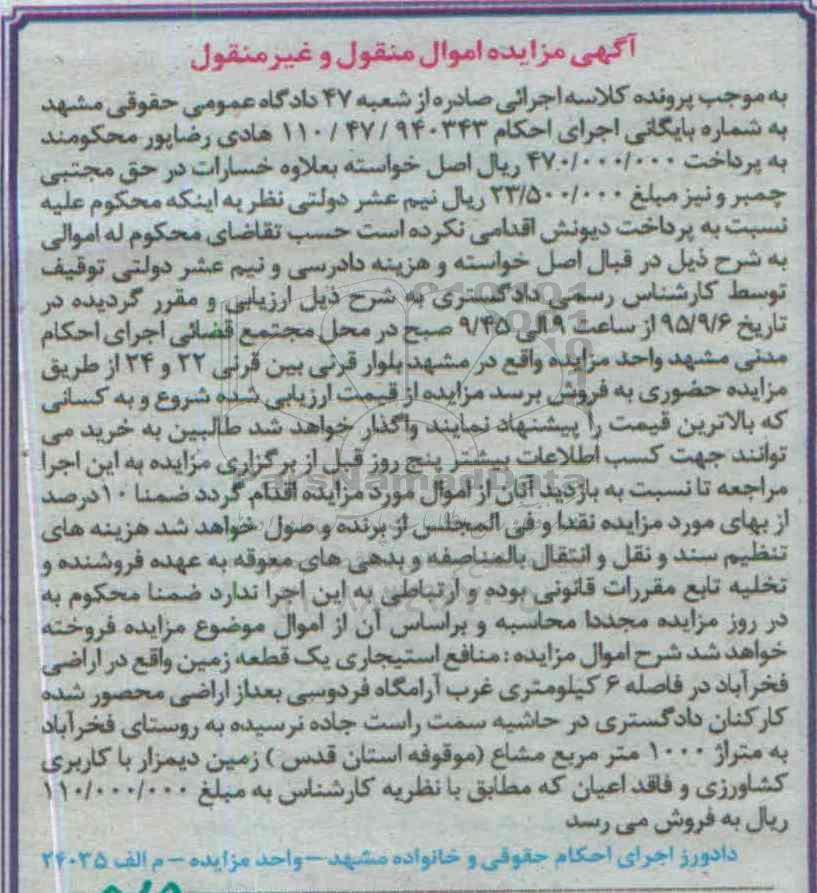 آگهی مزایده اموال منقول و غیر منقول
به موجب پرونده کلاسه اجرائی صادره از شعبه ۴۷ دادگاه عمومی حقوقی مشهد
به شماره بایگانی اجرای احکام ۹۴۰۳۴۳ / ۴۷ / ۱۱۰ هادی رضاپور محکومند
به پرداخت ۴۷۰/۰۰۰/۰۰۰ ریال اصل خواسته بعلاوه خسارات در حق مجتبی
چمبر و نیز مبلغ ۲۳/۵۰۰/۰۰۰ ریال نیم عشر دولتی نظر به اینکه محکوم علیه
نسبت به پرداخت دیونش اقدامی نکرده است حسب تقاضای محکوم له اموالی
به شرح ذیل در قبال اصل خواسته و هزینه دادرسی و نیم عشر دولتی توقیف
توسط کارشناس رسمی دادگستری به شرح ذیل ارزیابی و مقرر گردیده در
تاریخ ۹۵/۹/۶ از ساعت ۹ الی ۹/۴۵ صبح در محل مجتمع قضائی اجرای احکام
مدنی مشهد واحد مزایده واقع در مشهد بلوار قرنی بین قرنی ۲۲ و ۲۴ از طریق
مزایده حضوری به فروش برسد مزایده از قیمت ارزیابی شده شروع و به کسانی
که بالاترین قیمت را پیشنهاد نمایند واگذار خواهد شد طالبین به خرید می
توانند جهت کسب اطلاعات بیشتر پنج روز قبل از برگزاری مزایده به این اجرا
مراجعه تا نسبت به بازدید آنان از اموال مورد مزایده اقدام گردد ضمنا ۱۰درصد
از بهای مورد مزایده نقدا و فی المجلس از برنده وصول خواهد شد هزینه های
تنظیم سند و نقل و انتقال بالمناصفه و بدهی های معوقه به عهده فروشنده و
تخلیه تابع مقررات قانونی بوده و ارتباطی به این اجرا ندارد ضمنا محکوم به
در روز مزایده مجددا محاسبه و براساس آن از اموال موضوع مزایده فروخته
خواهد شد شرح اموال مزایده : منافع استیجاری یک قطعه زمین واقع در اراضی
فخرآباد در فاصله ۶ کیلومتری غرب آرامگاه فردوسی بعداز اراضی محصور شده
کارکنان دادگستری در حاشیه سمت راست جاده نرسیده به روستای فخرآباد
به متراژ ۱۰۰۰ متر مربع مشاع (موقوفه استان قدس ) زمین دیمزار با کاربری
کشاورزی و فاقد اعیان که مطابق با نظریه کارشناس به مبلغ ۱۱۰/۰۰۰/۰۰۰
ریال به فروش می رسد
دادورز اجرای احکام حقوقی و خانواده مشهد – واحد مزایده – م الف ۲۴۰۳۵
ParsNamadData